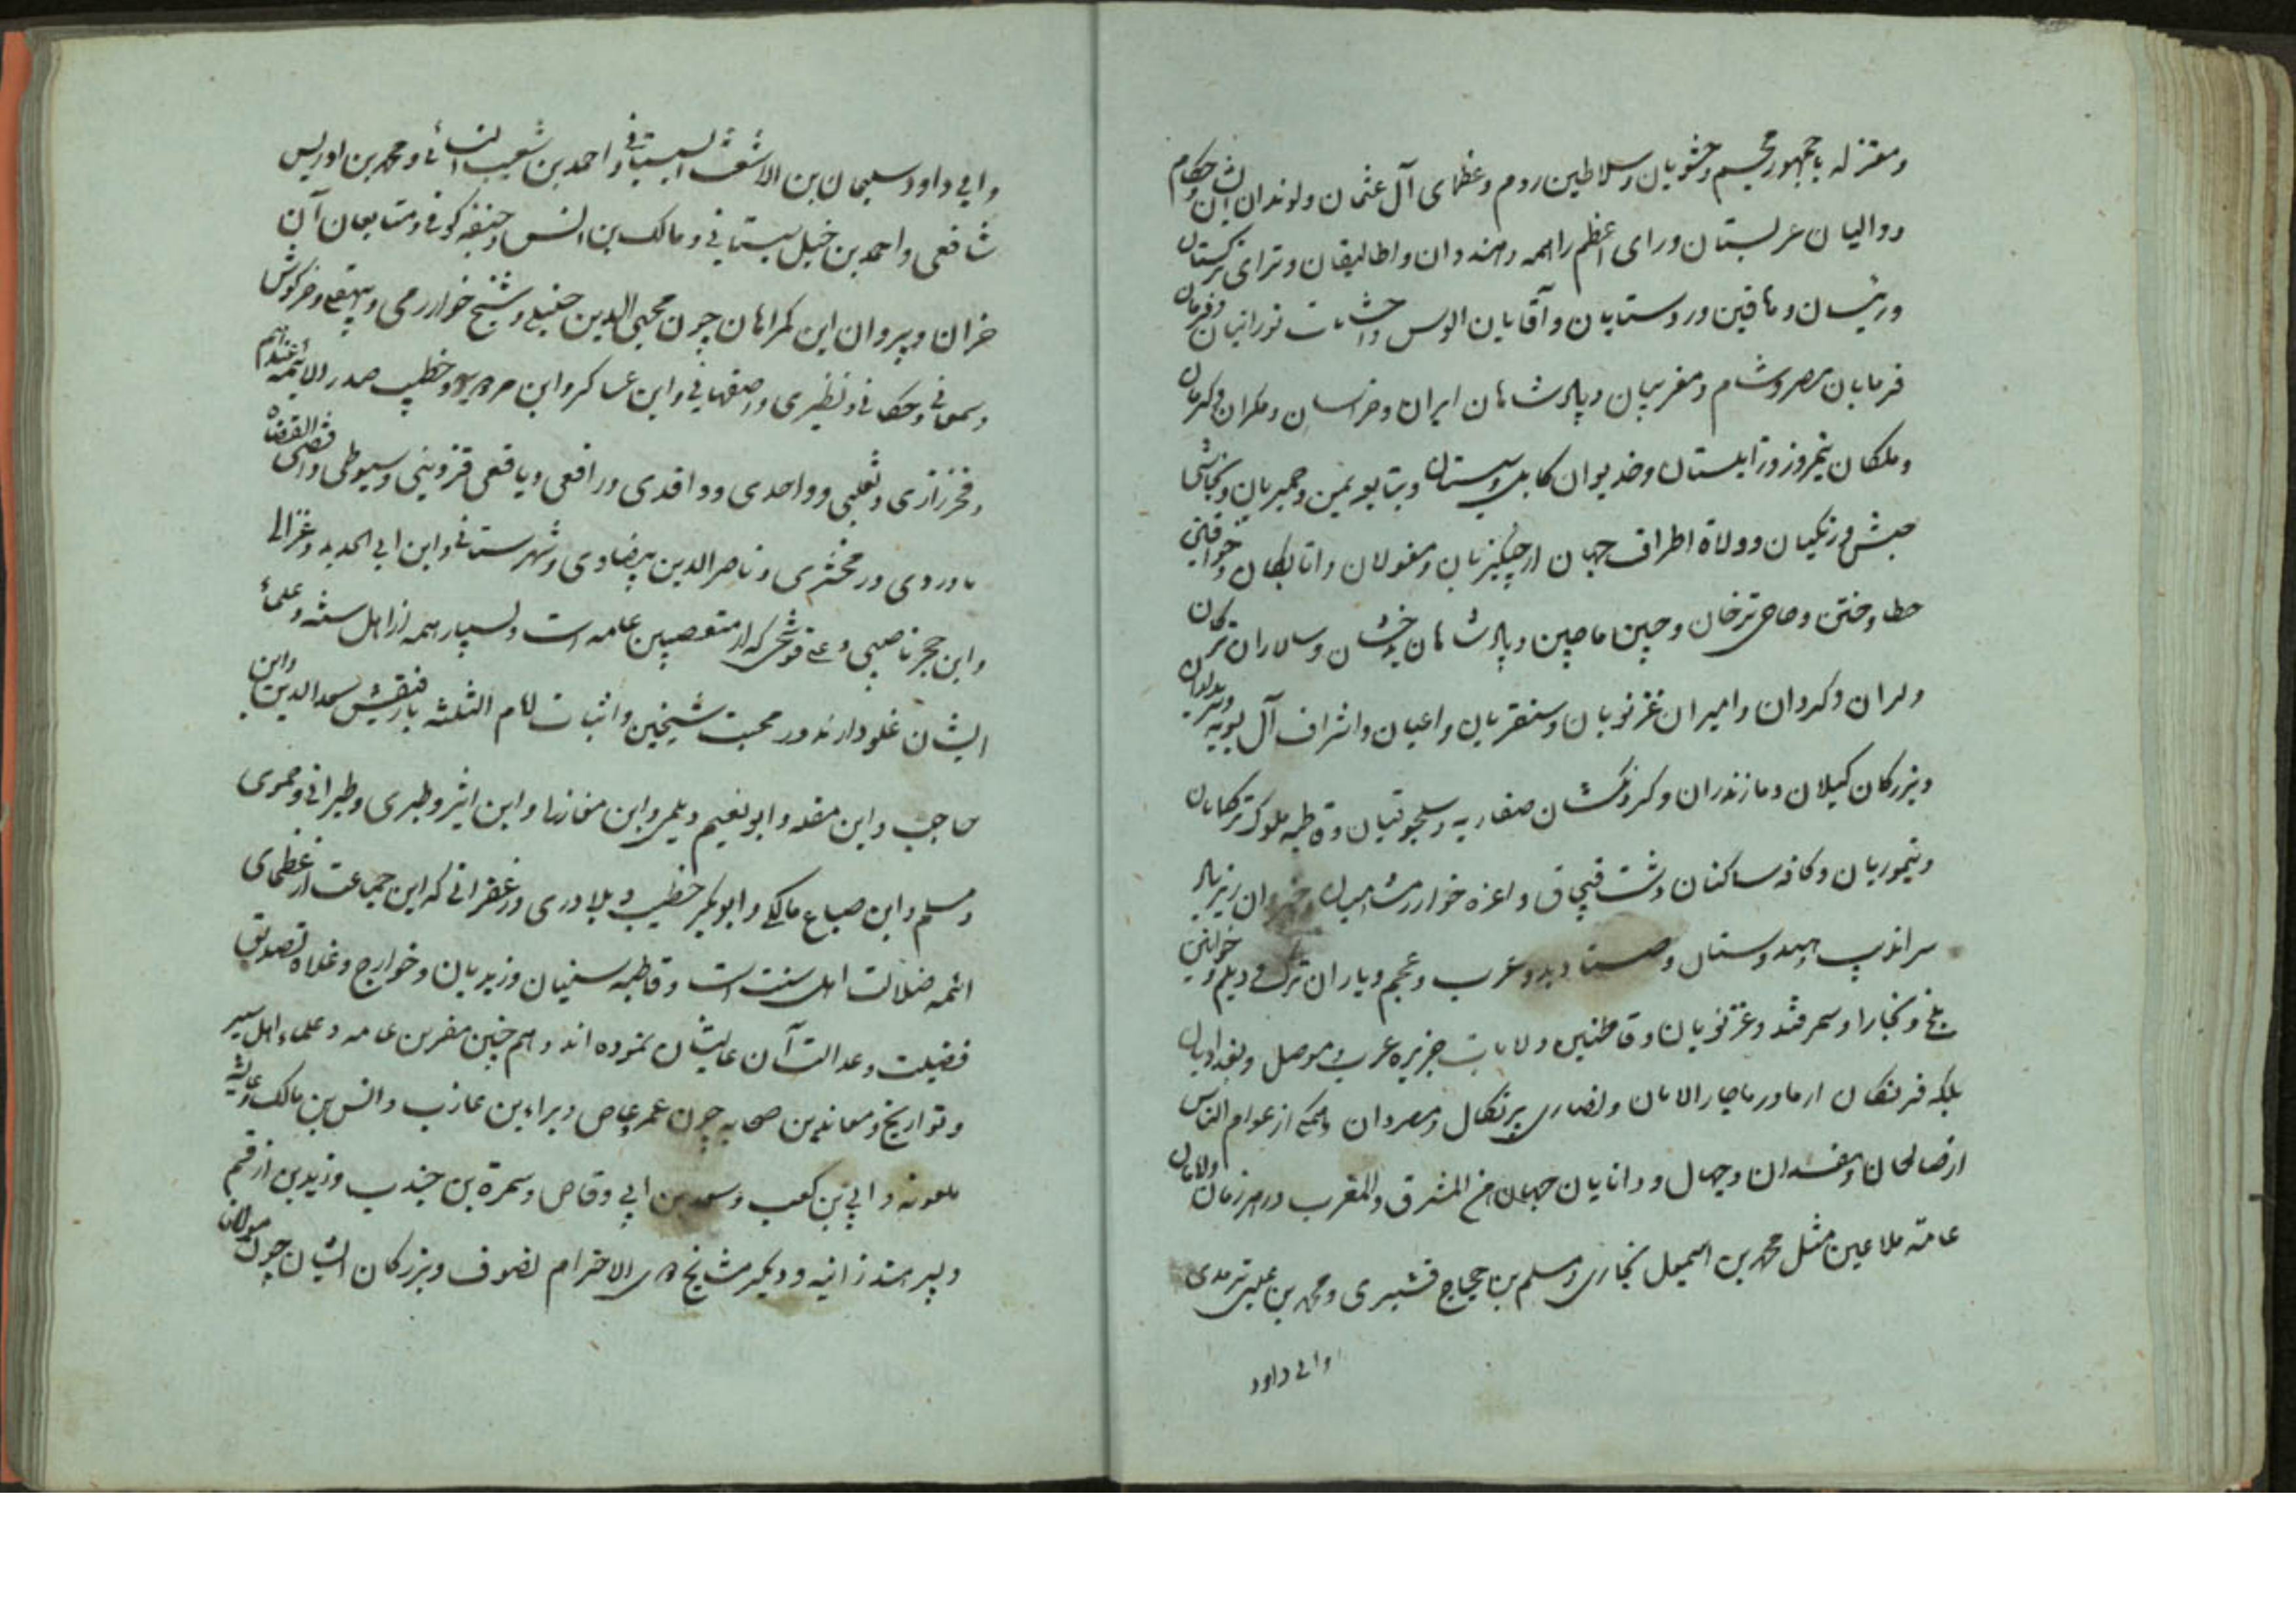 ومعتزله با جمهور مجسم وحشویان وسلاطین روم وعظمای آل عثمان ولوندان ایشان وحکام
ووالیان عربستان ورای اعظم راهمه وهندوان واطالیقان وترای ترکستان
ورئیسان ودهاقین وروستایان وآقایان الوس واحشامات تورانیان وفرمان
فرمایان مصر وشام ومغربیان وپادشاهان ایران وخراسان ومکران وکرمان
وملکان نیمروز وزابلستان وخدیوان کابل وسیستان وتبابعه یمن وحمیریان ونجاشی
حبش وزنکیان وولاة اطراف جهان از چنکیزیان ومغولان واتابکان وخواقین
خطا وختن وحاجی ترخان وچین ماچین وپادشاهان بدخشان وسالاران ترکان
ولران وکردان وامیران غزنویان وسنقریان واعیان واشراف آل بویه وسربداران
وبزرکان کیلان ومازندران وکردنکشان صفاریه وسلجوقیان وقاطبه ملوک ترکمانان
وتیموریان وکافه ساکنان دشت قپچاق واعزه خوارزمشاهیان زیرباد
سراندیب وهندوستان وعرب وعجم ویاران ترک ودیلم وخوانین
بلخ وبخارا وسمرقند وغزنویان وقاطنین ولایات جزیره عرب موصل وبغدادیان
بلکه فرنکان ار ما در ماچار الامان ونصاری پرتکال ومصردان وهمکی از عوام الناس
از صالحان ومفسدان وجهال ودانایان جهان من المشرق والمغرب در هر زمان والامان
عامه ملاعین مثل محمد بن اسمعیل بخاری ومسلم بن حجاج قشیری ومحمد بن عیسی ترمدی
وابی داود
وابی داود سلیمان بن الاشعث السبستانی واحمد بن شعیب النسائی ومحمد بن ادریس
شافعی واحمد بن حنبل سیستانی ومالک بن انس وحنیفه کوفی ومتابعان آن
خران وپیروان این کمراهان چون محیی الدین حنبلی وشیخ خوارزمی وبیهقی وخرکوش
وسمعانی وحکانی ونظیری واصفهانی وابن عساکر وابن مردویه وخطیب صدر الائمه عندهم
وفخر رازی وثعلبی وواحدی وواقدی ورافعی ویافعی قزوینی وسیوطی واقضی القضاة
ماوردی وزمخشری وناصر الدین بیضاوی وشهرستانی وابن ابی الحدید وغزالی
وابن حجر ناصبی وعلی قوشجی که از متعصبین عامه است وبسیار همه از اهل سنه وعلمائ
ایشان غلو دارند در محبت شیخین واثبات امام الثلثه بارفیقش سعد الدین وابن
حاجب وابن مقله وابو نعیم ویلمی وابن مغازلی وابن اثیر وطبری وطبرانی وحموی
ومسلم وابن صباغ مالکی وابوبکر خطیب وبلادری وزعفرانی که این جماعت از عظمای
ائمه ضلالت اهل سنت است وقاطبه سنیان وزیدیان وخوارج وغلاة تصدیق
فضیلت وعدالت آن عالیشان نموده اند وهم چنین مفسرین عامه وعلماء اهل سیر
وتواریخ ومعاندین صحابه چون عمرو عاص وبراء بن عازب وانس بن مالک وعایشه
ملعونه وابی بن کعب وسعد بن ابی وقاص وسمرة بن جندب وزید بن ارقم
وپسر هند زانیه ودیکر مشایخ ذی الاحترام تصوف وبزرکان ایشان چون مولانا